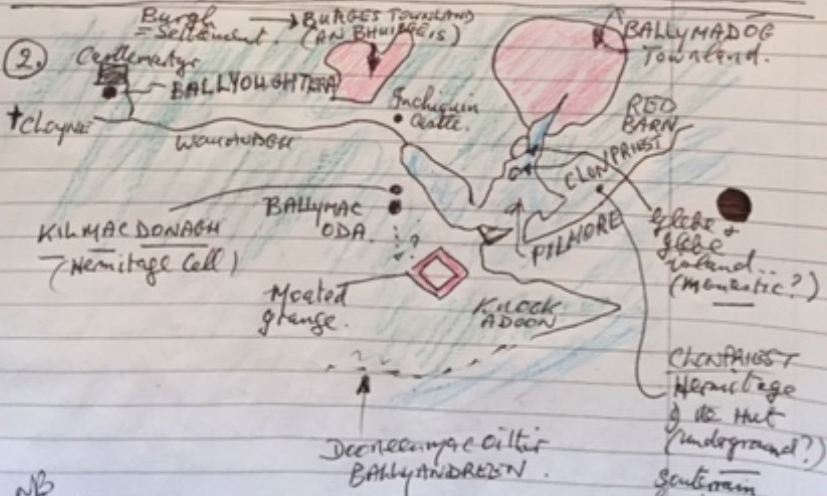 2.
Burgh
= Settlement
BURGES TOWNLAND
(AN BHUIRGÉIS)
BALLYMADOG
Townland.
Castlemartyr
BALLYOUGHTERA
Inchiquin
Castle.
RED
BARN
† CLOYNE
WOMANAGH
CLONPRIEST
BALLYMAC
ODA.
KILMACDONAGH
(Hermitage Cell)
PILMORE
Glebe &
glebe
island..
(Monastic?)
?
Moated
grange.
KNOCK
ADOON
CLONPRIEST
Hermitage
Hut
(underground?)
Souterrain
BALLYANDREEN.
NB